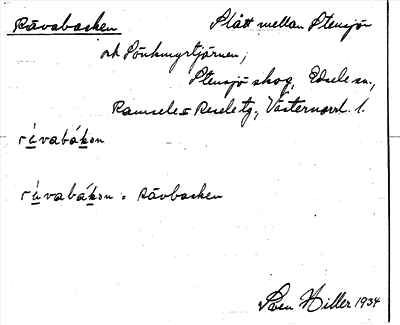 Rävabacken Slått mellan Stensjön
och Sönkmyrtjärnen,
Stensjö skog, Edsele sn.,
Ramsele o Resele tg, Västernorrl. l.
rávabákon
rávabákon = Rävbacken
Sven Hiller 1934